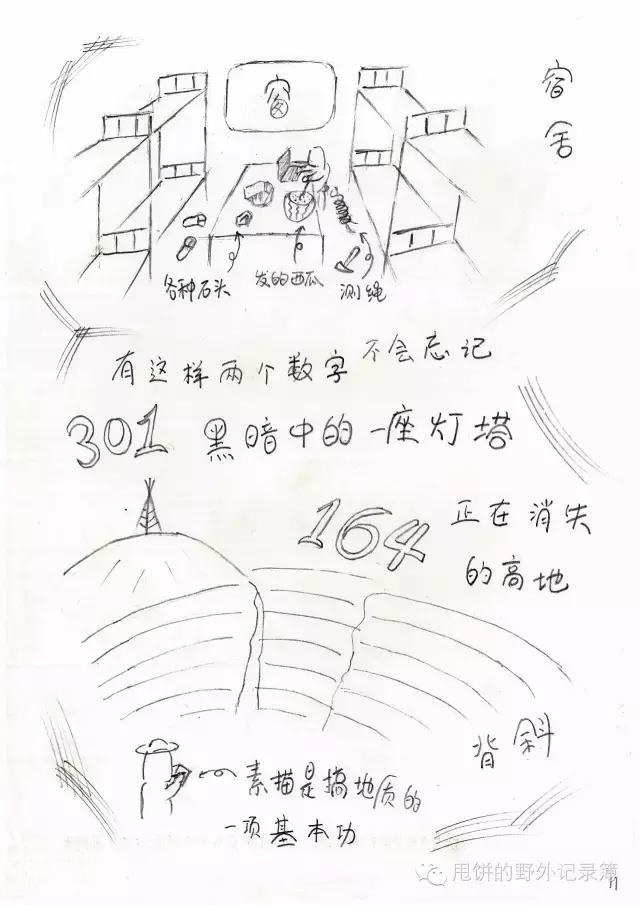 窗
宿舍
各种石头
发的西瓜
测绳
有这样两个数字不会忘记
301 黑暗中的一座灯塔
164 正在消失
的高地
背斜
素描是搞地质的
一项基本功
甩饼的野外记录簿
11